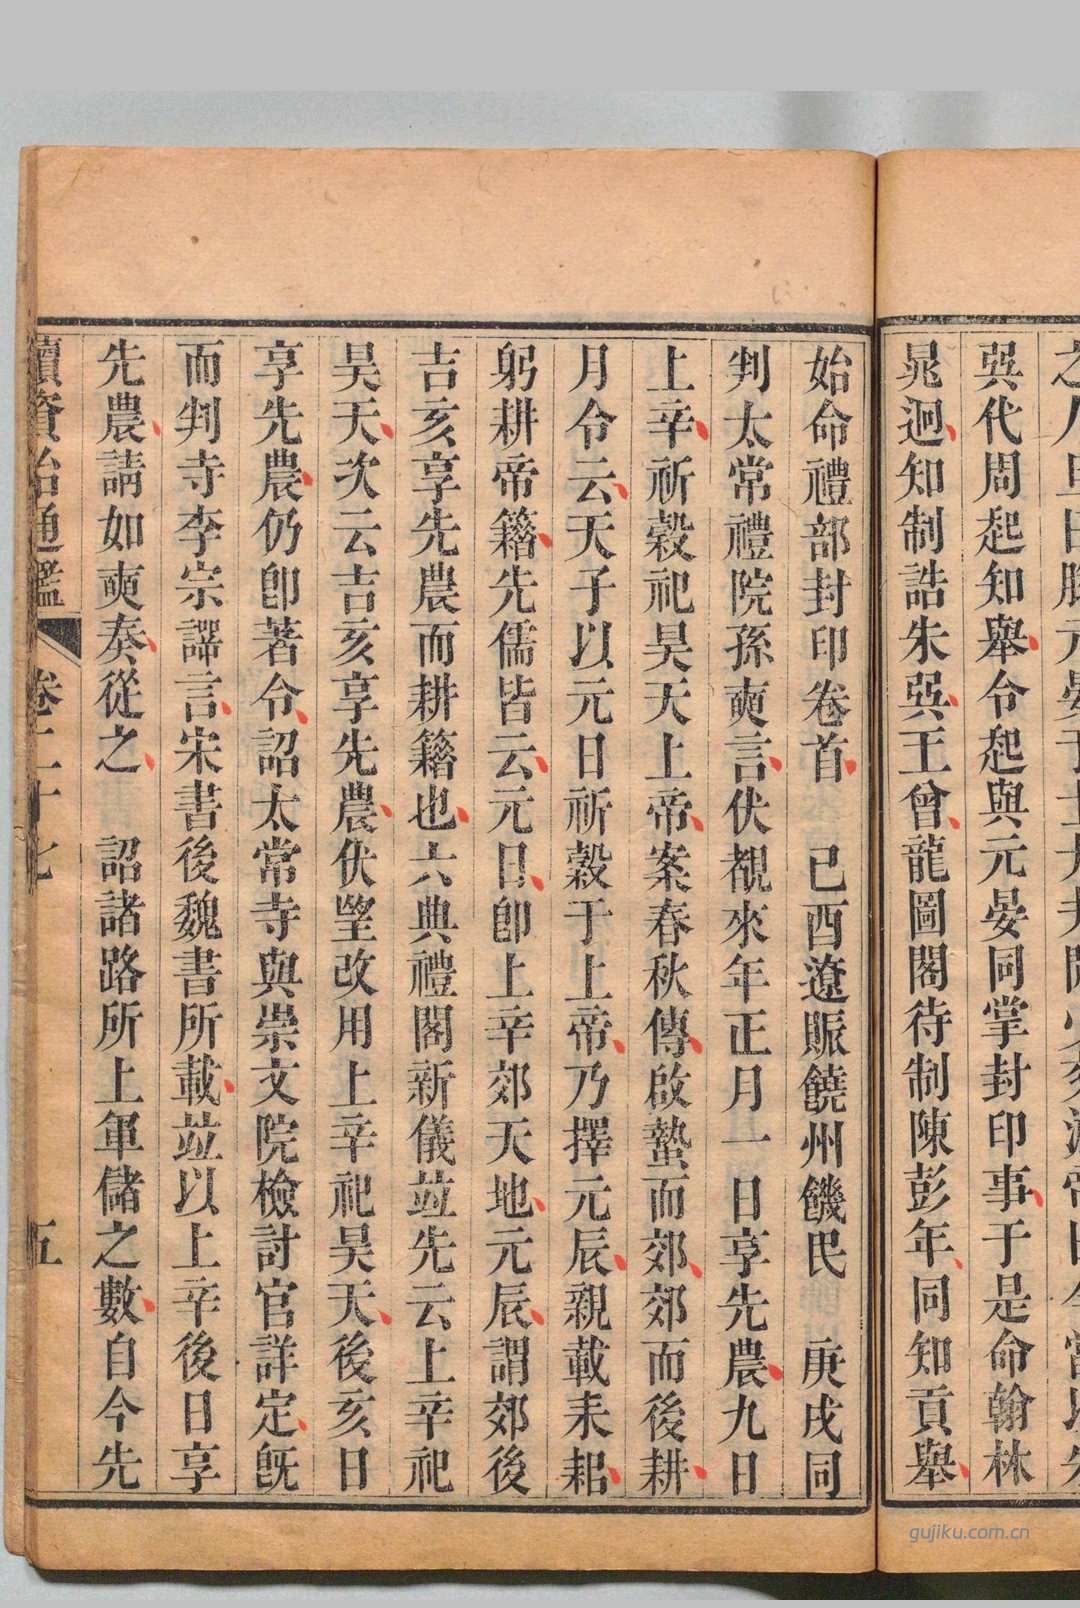 吳代周起知舉令起與元晏同掌封印事于是命翰林
晁迥知制誥朱巽王曾龍圖閣待制陳彭年同知貢舉
始命禮部封印卷首　己酉遼賑饒州饑民　庚戌同
判太常禮院孫奭言伏覩來年正月一日享先農九日
上辛祈穀祀昊天上帝案春秋傳啟蟄而郊郊而後耕
月令云天子以元日祈穀于上帝乃擇元辰親載耒耜
躬耕帝籍先儒皆云元日卽上辛郊天地元辰謂郊後
吉亥享先農而耕籍也六典禮閣新儀竝先云上辛祀
昊天次云吉亥享先農伏望改用上辛祀昊天後亥日
享先農仍卽著令詔太常寺與崇文院檢討官詳定旣
而判寺李宗諤言宋書後魏書所載竝以上辛後日享
先農請如奭奏從之　詔諸路所上軍儲之數自今先
續資治通鑑　卷二十七　五
gujiku.com.cn